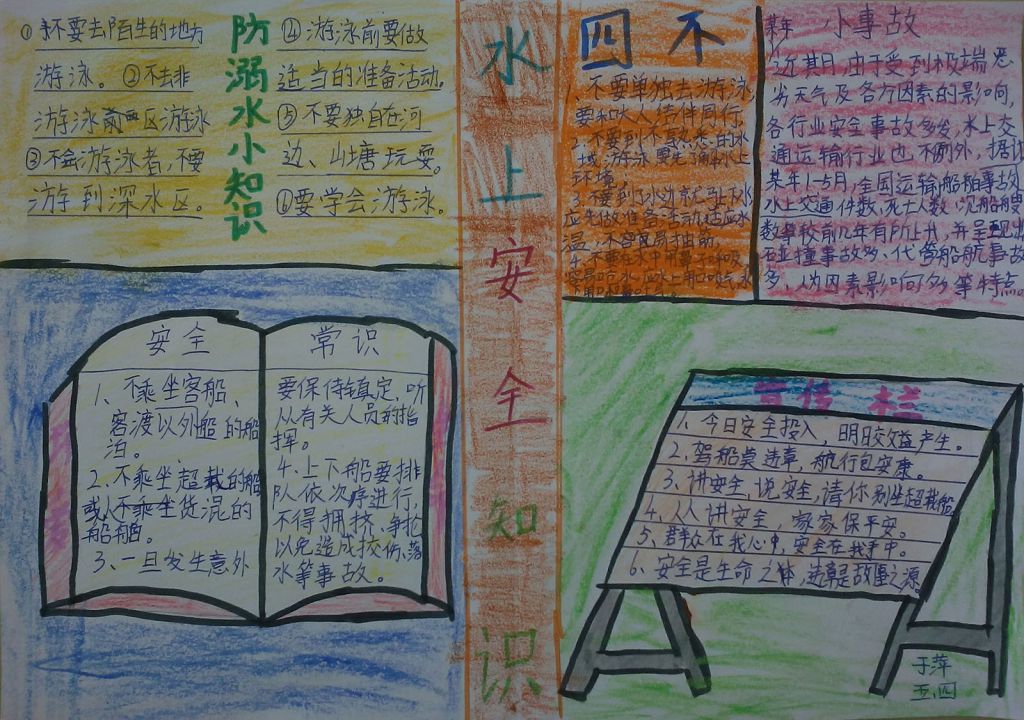 防溺水小知识
①不要去陌生的地方
游泳。②不去非
游泳区游泳
③不会游泳者,不要
游到深水区。
④游泳前要做
适当的准备活动。
⑤不要独自在河
边、山塘玩耍。
⑥要学会游泳。
水上安全知识
四不
1、不要单独去游泳,
要和大人结伴同行
2、不要到不熟悉的水
域游泳,要先了解水上
环境
3、不要到了水边就马上下水
应先做准备活动,适应水
温,不容易抽筋
4、不要在水中用鼻子
小事故
某年
近其日,由于受到极端恶
劣天气及各方因素的影响,
各行业安全事故多发,水上交
通运输行业也不例外,据计
某年1-5月,全国运输船舶事故
水上交通件数、死亡人数、沉船艘
数等较前几年有所上升,并呈现出
碰撞事故多、代管船航事故
多、人为因素影响多等特点。
安全
1、不乘坐客船、
客渡以外船的船
泊。
2、不乘坐超载的船
或人不乘坐货混的
船舶。
3、一旦发生意外
常识
要保持镇定,听
从有关人员的指
挥。
4、上下船要排
队依次序进行,
不得拥挤、争抢
以免造成挤伤、落
水等事故。
宣传栏
1、今日安全投入,明日交效益产生。
2、驾船莫违章,航行包安康。
3、讲安全,说安全,请你别坐超载船
4、人人讲安全,家家保平安。
5、群众在我心中,安全在我手中。
6、安全是生命之体,违章是故里之源。
于萍
五、四